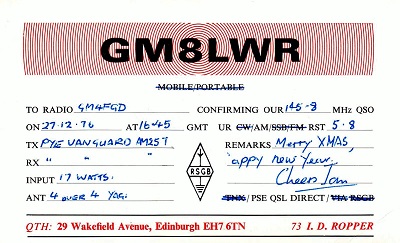 GM8LWR
MOBILE/PORTABLE
TO RADIO GM4FGD CONFIRMING OUR 145.8 MHz QSO
ON 27.12.76 AT 16.45 GMT UR CW/AM/SSB/FM RST 5.8
TX PYE VANGUARD AM25T REMARKS Merry XMAS,
RX " " 'appy new Year.
INPUT 17 WATTS. Cheers Ian
ANT 4 OVER 4 YAGI TNX/ PSE QSL DIRECT/ VIA RSGB
RSGB
QTH: 29 Wakefield Avenue, Edinburgh EH7 6TN 73 I. D. ROPPER